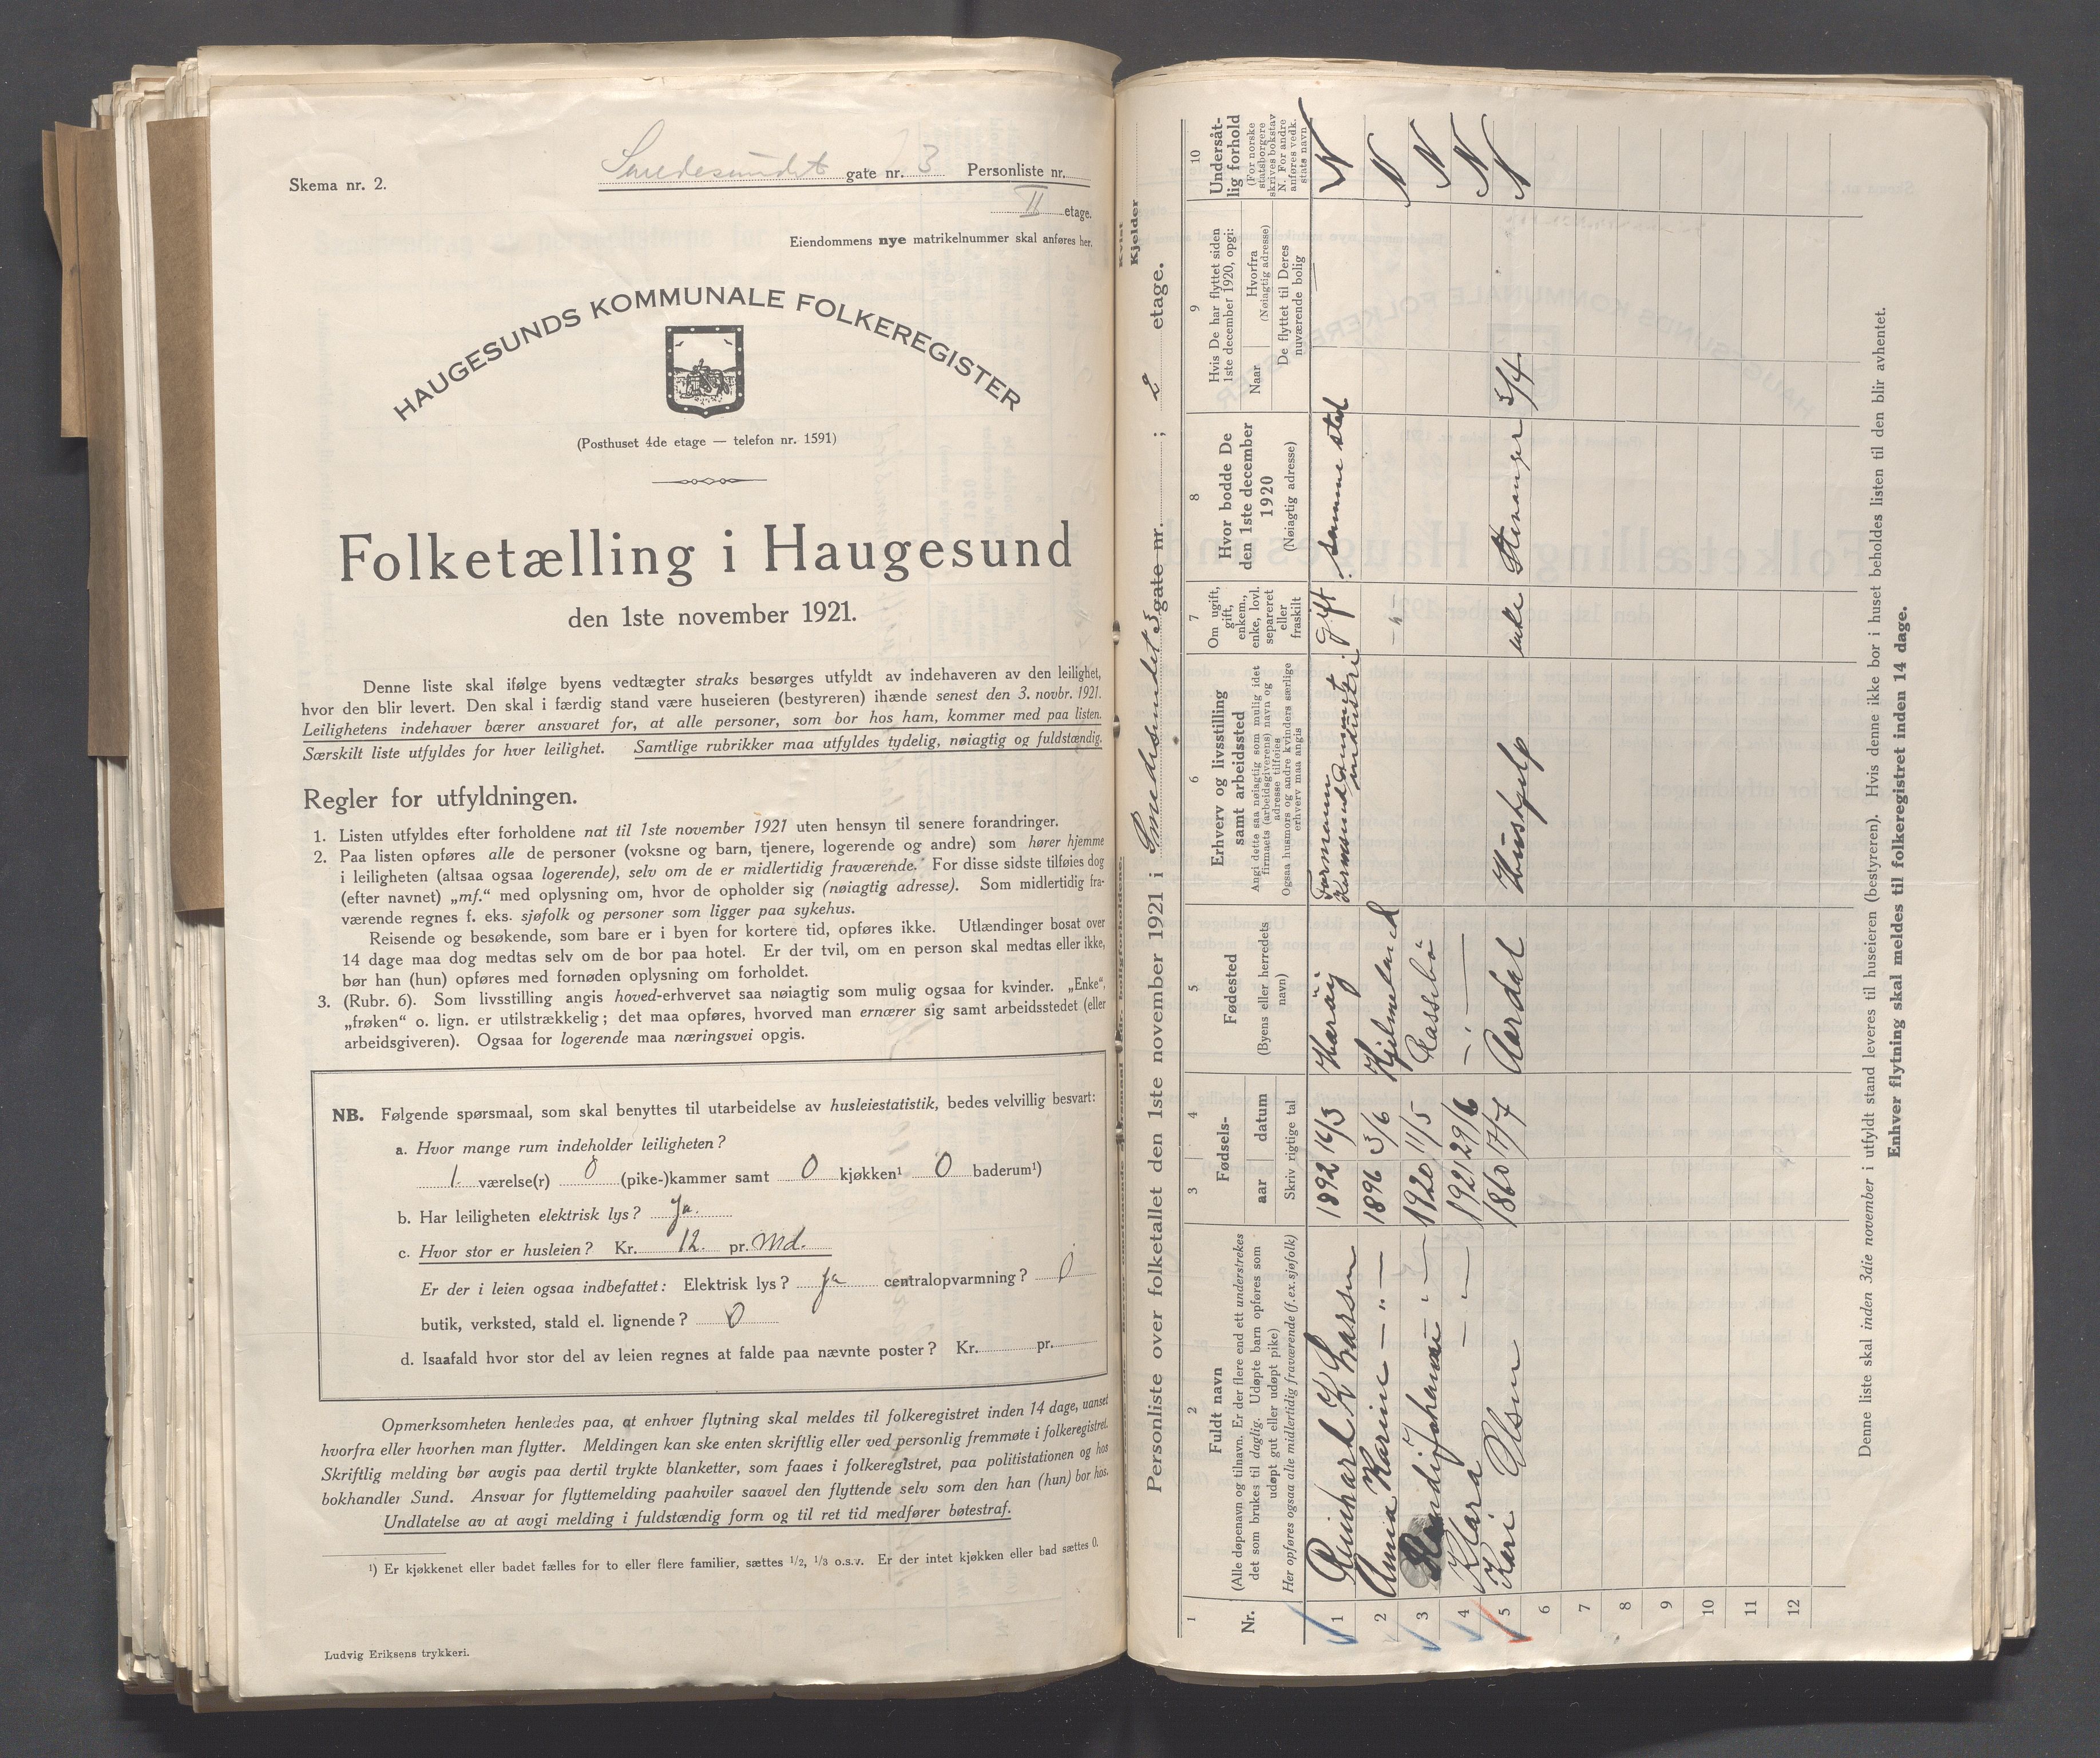 Skema nr. 2.
Smedesundet gate nr. 3 Personliste nr.
II etage.
Eiendommens nye matrikelnummer skal anføres her.
HAUGESUNDS KOMMUNALE FOLKEREGISTER
(Posthuset 4de etage — telefon nr. 1591)
Folketælling i Haugesund
den 1ste november 1921.
Denne liste skal ifølge byens vedtægter straks besørges utfyldt av indehaveren av den leilighet,
hvor den blir levert. Den skal i færdig stand være huseieren (bestyreren) ihænde senest den 3. novbr. 1921.
Leilighetens indehaver bærer ansvaret for, at alle personer, som bor hos ham, kommer med paa listen.
Særskilt liste utfyldes for hver leilighet. Samtlige rubrikker maa utfyldes tydelig, nøiagtig og fuldstændig.
Regler for utfyldningen.
1. Listen utfyldes efter forholdene nat til 1ste november 1921 uten hensyn til senere forandringer.
2. Paa listen opføres alle de personer (voksne og barn, tjenere, logerende og andre) som hører hjemme
i leiligheten (altsaa ogsaa logerende), selv om de er midlertidig fraværende. For disse sidste tilføies dog
(efter navnet) „mf.“ med oplysning om, hvor de opholder sig (nøiagtig adresse). Som midlertidig fra-
værende regnes f. eks. sjøfolk og personer som ligger paa sykehus.
Reisende og besøkende, som bare er i byen for kortere tid, opføres ikke. Utlændinger bosat over
14 dage maa dog medtas selv om de bor paa hotel. Er der tvil, om en person skal medtas eller ikke,
bør han (hun) opføres med fornøden oplysning om forholdet.
3. (Rubr. 6). Som livsstilling angis hoved-erhvervet saa nøiagtig som mulig ogsaa for kvinder. „Enke“,
„frøken“ o. lign. er utilstrækkelig; det maa opføres, hvorved man ernærer sig samt arbeidsstedet (eller
arbeidsgiveren). Ogsaa for logerende maa næringsvei opgis.
NB. Følgende spørsmaal, som skal benyttes til utarbeidelse av husleiestatistik, bedes velvillig besvart:
a. Hvor mange rum indeholder leiligheten?
1. værelse(r) 0 (pike-)kammer samt 0 kjøkken¹ 0 baderum¹)
b. Har leiligheten elektrisk lys? Ja.
c. Hvor stor er husleien? Kr. 12. pr. Md.
Er der i leien ogsaa indbefattet: Elektrisk lys? Ja centralopvarmning? 0
butik, verksted, stald el. lignende? 0
d. Isaafald hvor stor del av leien regnes at falde paa nævnte poster? Kr. pr.
Opmerksomheten henledes paa, at enhver flytning skal meldes til folkeregistret inden 14 dage, uanset
hvorfra eller hvorhen man flytter. Meldingen kan ske enten skriftlig eller ved personlig fremmøte i folkeregistret.
Skriftlig melding bør avgis paa dertil trykte blanketter, som faaes i folkeregistret, paa politistationen og hos
bokhandler Sund. Ansvar for flyttemelding paahviler saavel den flyttende selv som den han (hun) bor hos.
Undlatelse av at avgi melding i fuldstændig form og til ret tid medfører bøtestraf.
¹) Er kjøkkenet eller badet fælles for to eller flere familier, sættes 1/2, 1/3 o.s.v. Er der intet kjøkken eller bad sættes 0.
Ludvig Eriksens trykkeri.
Kvist
Kjelder
Personliste over folketallet den 1ste november 1921 i Smedesundet 3 gate nr. ; 2 etage.
1 2 3 4 5 6 7 8 9 10
Nr.
Fuldt navn
(Alle døpenavn og tilnavn. Er der flere end ett understrekes
det som brukes til daglig. Udøpte barn opføres som
udøpt gut eller udøpt pike)
Her opføres ogsaa alle midlertidig fraværende (f.ex. sjøfolk)
Fødsels-
aar datum
Skriv rigtige tal
Fødested
(Byens eller herredets
navn)
Erhverv og livsstilling
samt arbeidssted
Angi dette saa nøiagtig som mulig idet
firmaets (arbeidsgiverens) navn og
adresse tilføies
Ogsaa husmors og andre kvinders særlige
erhverv maa angis
Om ugift,
gift,
enkem.,
enke, lovl.
separeret
eller
fraskilt
Hvor bodde De
den 1ste december
1920
(Nøiagtig adresse)
Hvis De har flyttet siden
1ste december 1920, opgi:
Naar
Hvorfra
(Nøiagtig adresse)
De flyttet til Deres
nuværende bolig
Undersåt-
lig forhold
(For norske
statsborgere
skrives bokstav
N. For andre
anføres vedk.
stats navn)
1 Reinhard K Larsen 1892 14/3 Karøy Formann Karmsund Hermetikkindustri gift samme sted N
2 Anna Karine — „ — 1896 3/6 Hjelmeland — „ — N
3 Randi Johanne — „ — 1920 11/5 N
4 Klara — „ — 1921 29/6 — „ — N
5 Keri Olsen 1860 17/7 Aardal Hushjelp enke Stavanger 3/4 N
6
7
8
9
10
11
12
Denne liste skal inden 3die november i utfyldt stand leveres til huseieren (bestyreren). Hvis denne ikke bor i huset beholdes listen til den blir avhentet.
Enhver flytning skal meldes til folkeregistret inden 14 dage.